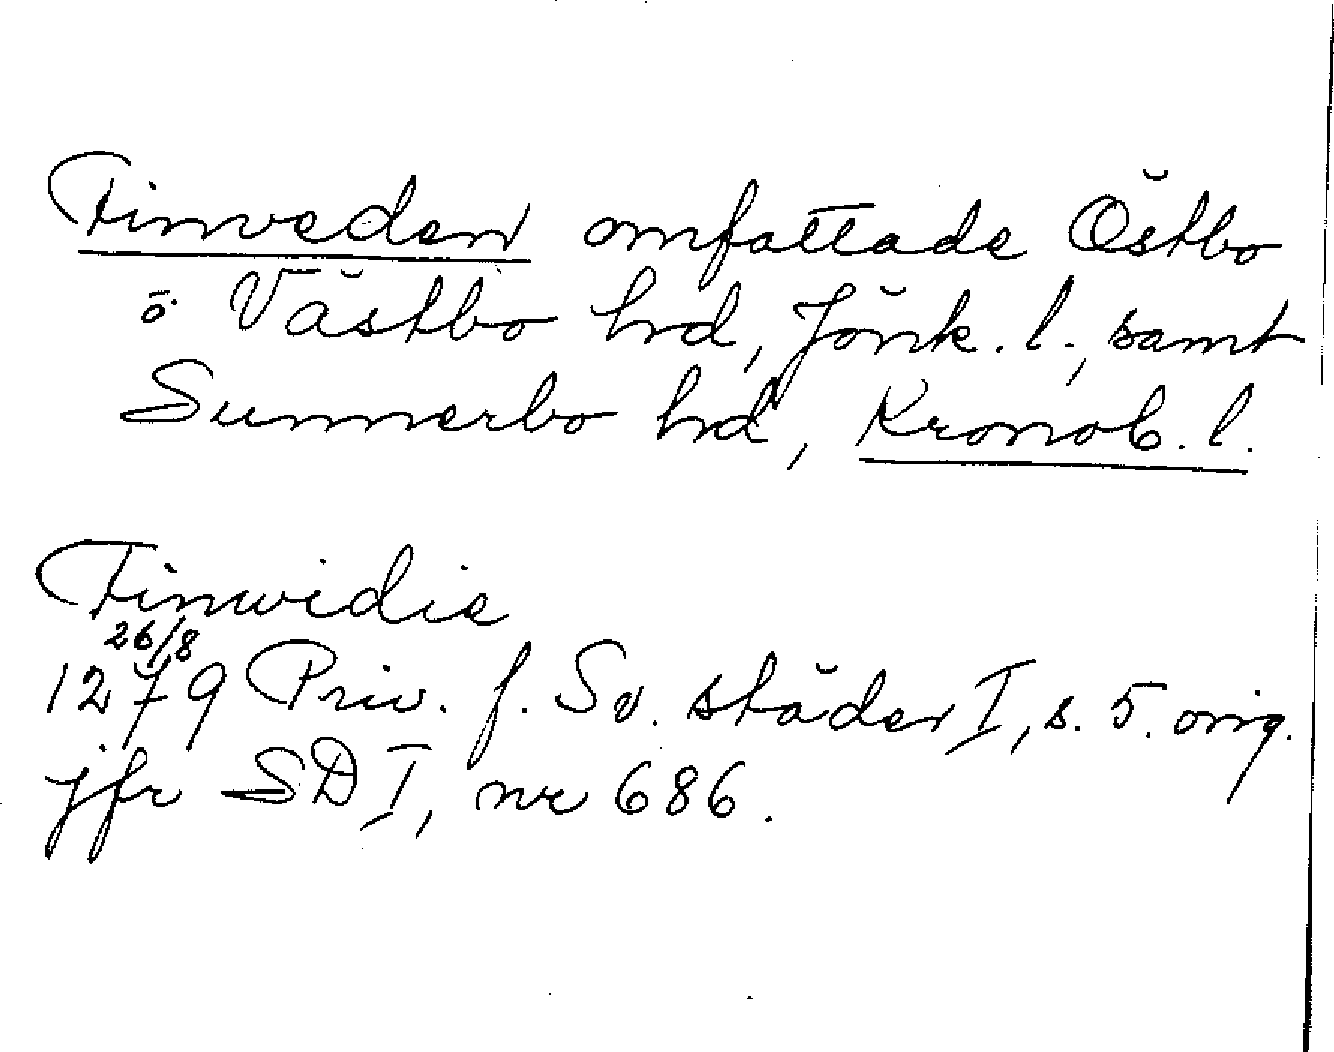 Finveden omfattade Östbo
o. Västbo hrd, Jönk. l., samt
Sunnerbo hrd, Kronob. l.
Finwidie
26/8
1279 Priv. f. Sv. städer I, s. 5. orig.
jfr SD I, nr 686.